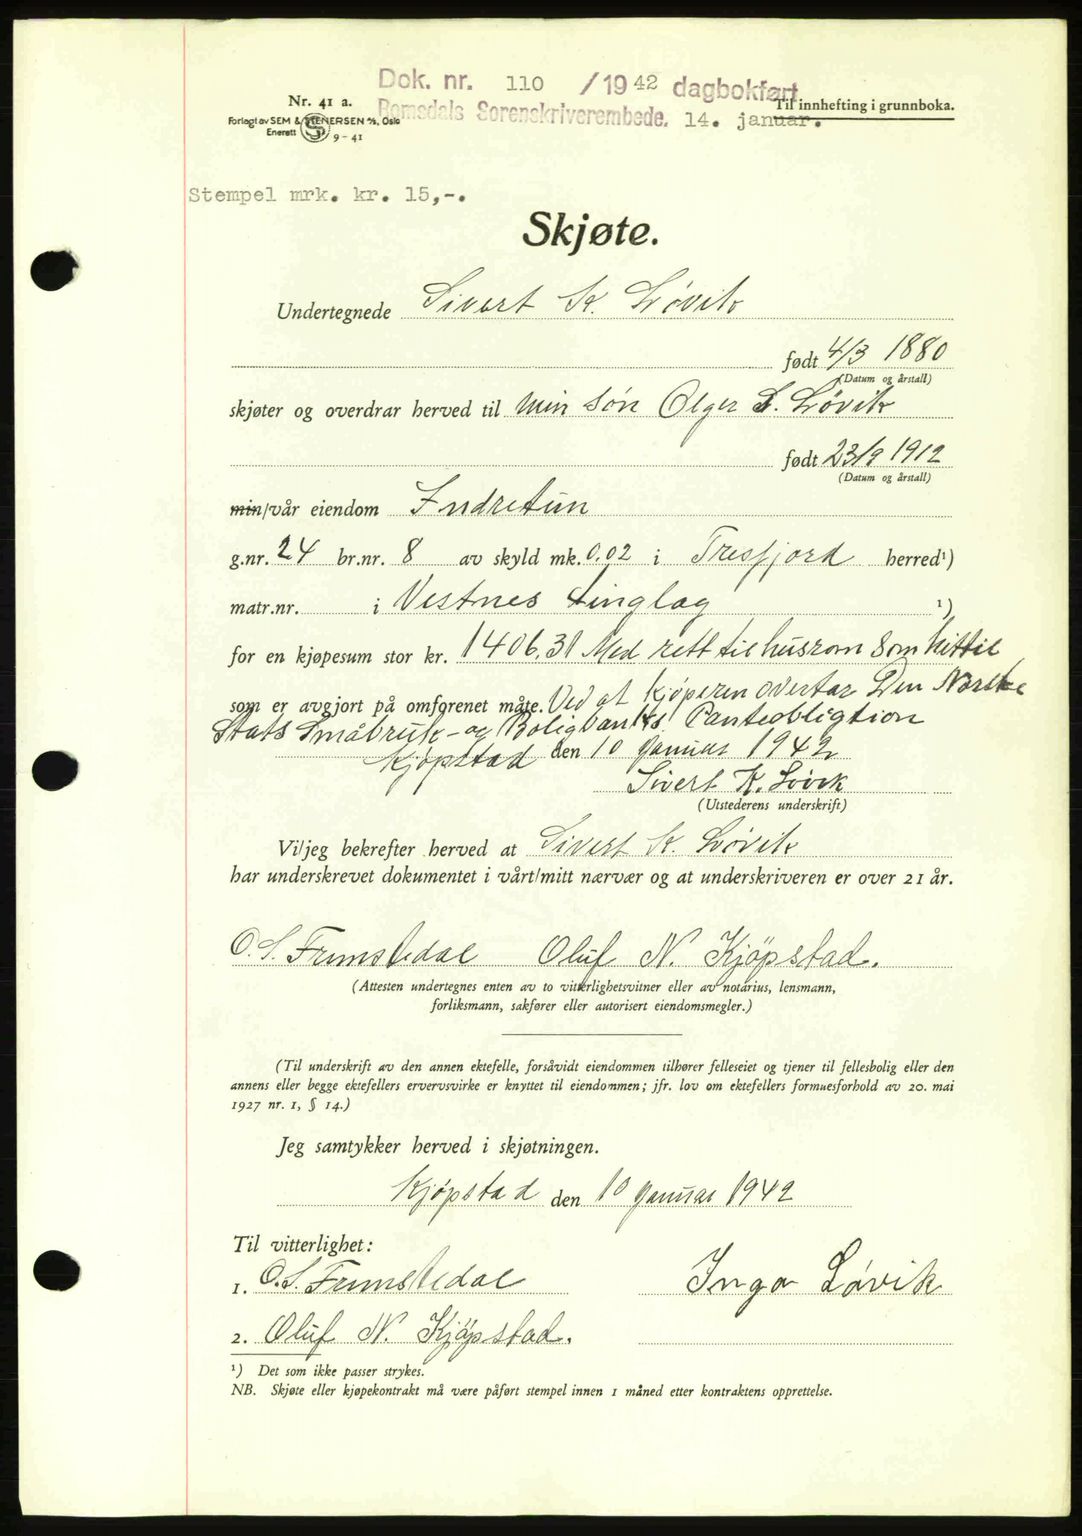 Dok. nr. 110 /1942 dagbokført
Nr. 41 a.
Til innhefting i grunnboka.
Romsdals Sorenskriverembede. 14. januar.
Forlagt av SEM & STENERSEN A/S, Oslo
Enerett 9-41
Stempel mrk. kr. 15,-.
Skjøte.
Undertegnede Sivert K. Løvik
født 4/3 1880
(Datum og årstall)
skjøter og overdrar herved til min søn Olger S. Løvik
født 23/9 1912
(Datum og årstall)
min/vår eiendom Indretun
g.nr. 24 br.nr. 8 av skyld mk. 0.02 i Tresfjord herred¹)
matr.nr. i Vestnes tinglag ¹)
for en kjøpesum stor kr. 1406,31 Med rett til husrom som hittil
som er avgjort på omforenet måte. Ved at kjøperen overtar Den Norske
Stats Småbruk- og Boligbanks Panteobligtion
Kjøpstad den 10 Januar 1942
Sivert K. Løvik
(Utstederens underskrift)
Vi/jeg bekrefter herved at Sivert K. Løvik
har underskrevet dokumentet i vårt/mitt nærvær og at underskriveren er over 21 år.
O. S. Frumstedal Oluf N. Kjöpstad.
(Attesten undertegnes enten av to vitterlighetsvitner eller av notarius, lensmann,
forliksmann, sakfører eller autorisert eiendomsmegler.)
(Til underskrift av den annen ektefelle, forsåvidt eiendommen tilhører felleseiet og tjener til fellesbolig eller den
annens eller begge ektefellers ervervsvirke er knyttet til eiendommen; jfr. lov om ektefellers formuesforhold av 20. mai
1927 nr. 1, § 14.)
Jeg samtykker herved i skjøtningen.
Kjøpstad den 10 Januar 1942
Til vitterlighet:
1. O. S. Frumstedal Inga Løvik
2. Oluf N. Kjöpstad.
¹) Det som ikke passer strykes.
NB. Skjøte eller kjøpekontrakt må være påført stempel innen 1 måned etter kontraktens opprettelse.